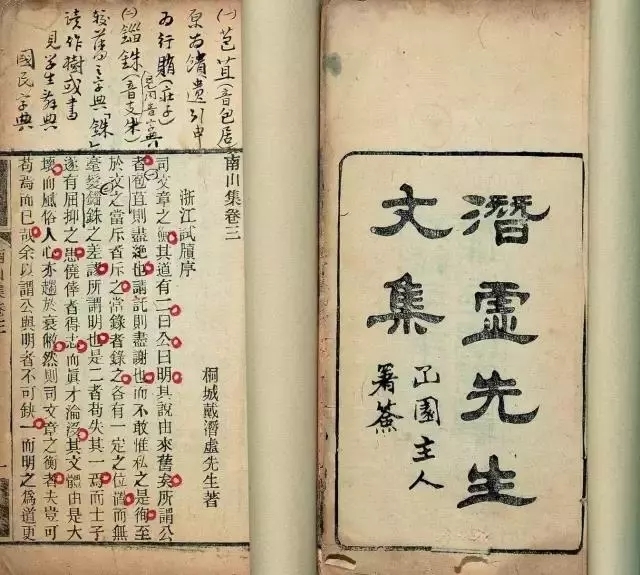 潛虛先生
文集
園主人
署簽
(一)苞苴(音包居
原为馈遗引申
为行賄(莊子)
(二)錙銖(音支朱)
舊字典「銖」
读作樹或書
見学生辞典
國民字典
南山集卷三
浙江試牘序
桐城戴潛虛先生著
司文章之衡其道有二曰公曰明其說由來舊矣所謂公
者苞苴則盡絶也請託則盡謝也而不敢惟私之是徇至
於文之當斥者斥之當錄者錄之各有一定之位置而無
毫髮錙銖之差謬所謂明也是二者苟失其一焉而士子
遂有屈抑之患僥倖者得志而眞才淪沒其文體由是大
壞而風俗人心亦趨於衰敝然則司文章之衡者夫豈可
苟焉而已哉余以謂公與明者不可缺一而明之爲道更